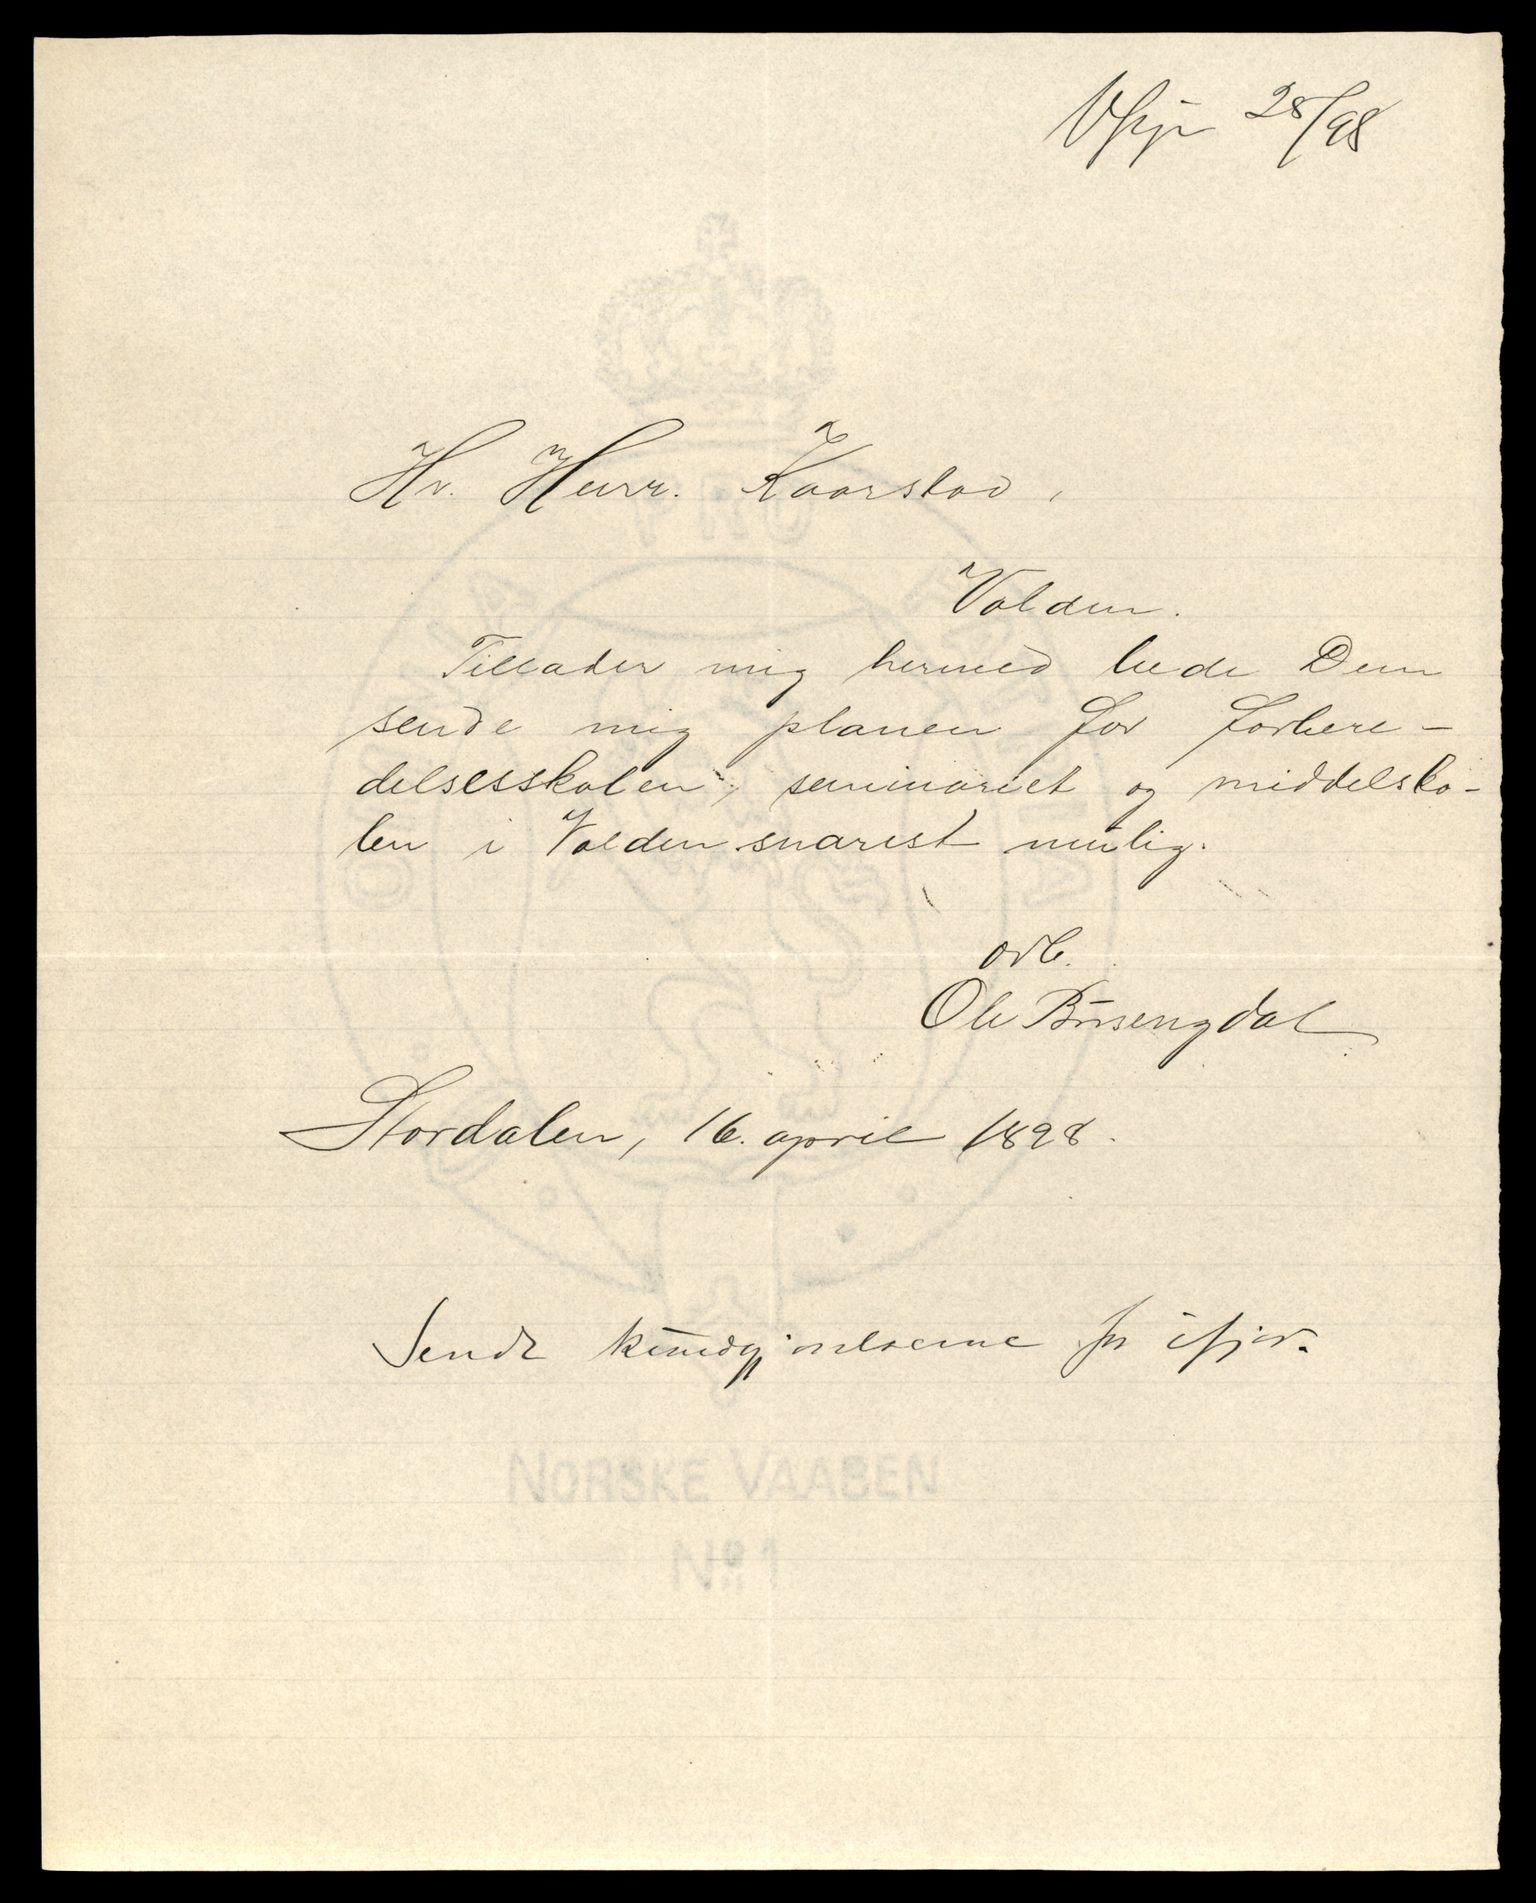 28/98
Hr. Herr. Kaarstad,
Volden.
Tillader mig herved bede Dem
sende mig planen for forbere-
delsesskolen, seminariet og middelsko-
len i Volden snarest mulig.
ærb.
Ole Busengdal
Stordalen, 16. april 1898.
Sendt kundgjørelserne for ifjor.
NORSKE VAABEN
No 1